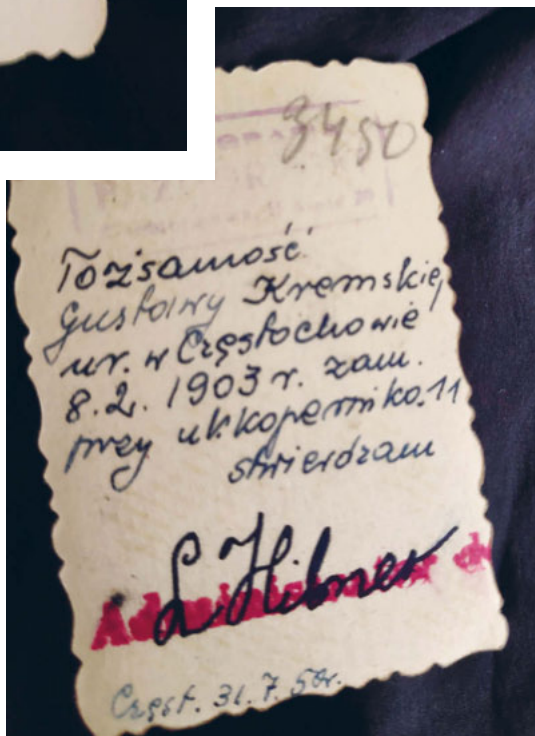 3450
Tożsamość
Gustawy Kremskiej
ur. w Częstochowie
8.2. 1903 r. zam.
przy ul. Kopernika 11
stwierdzam
L Hibner
Administrator
Częst. 31.7.50r.